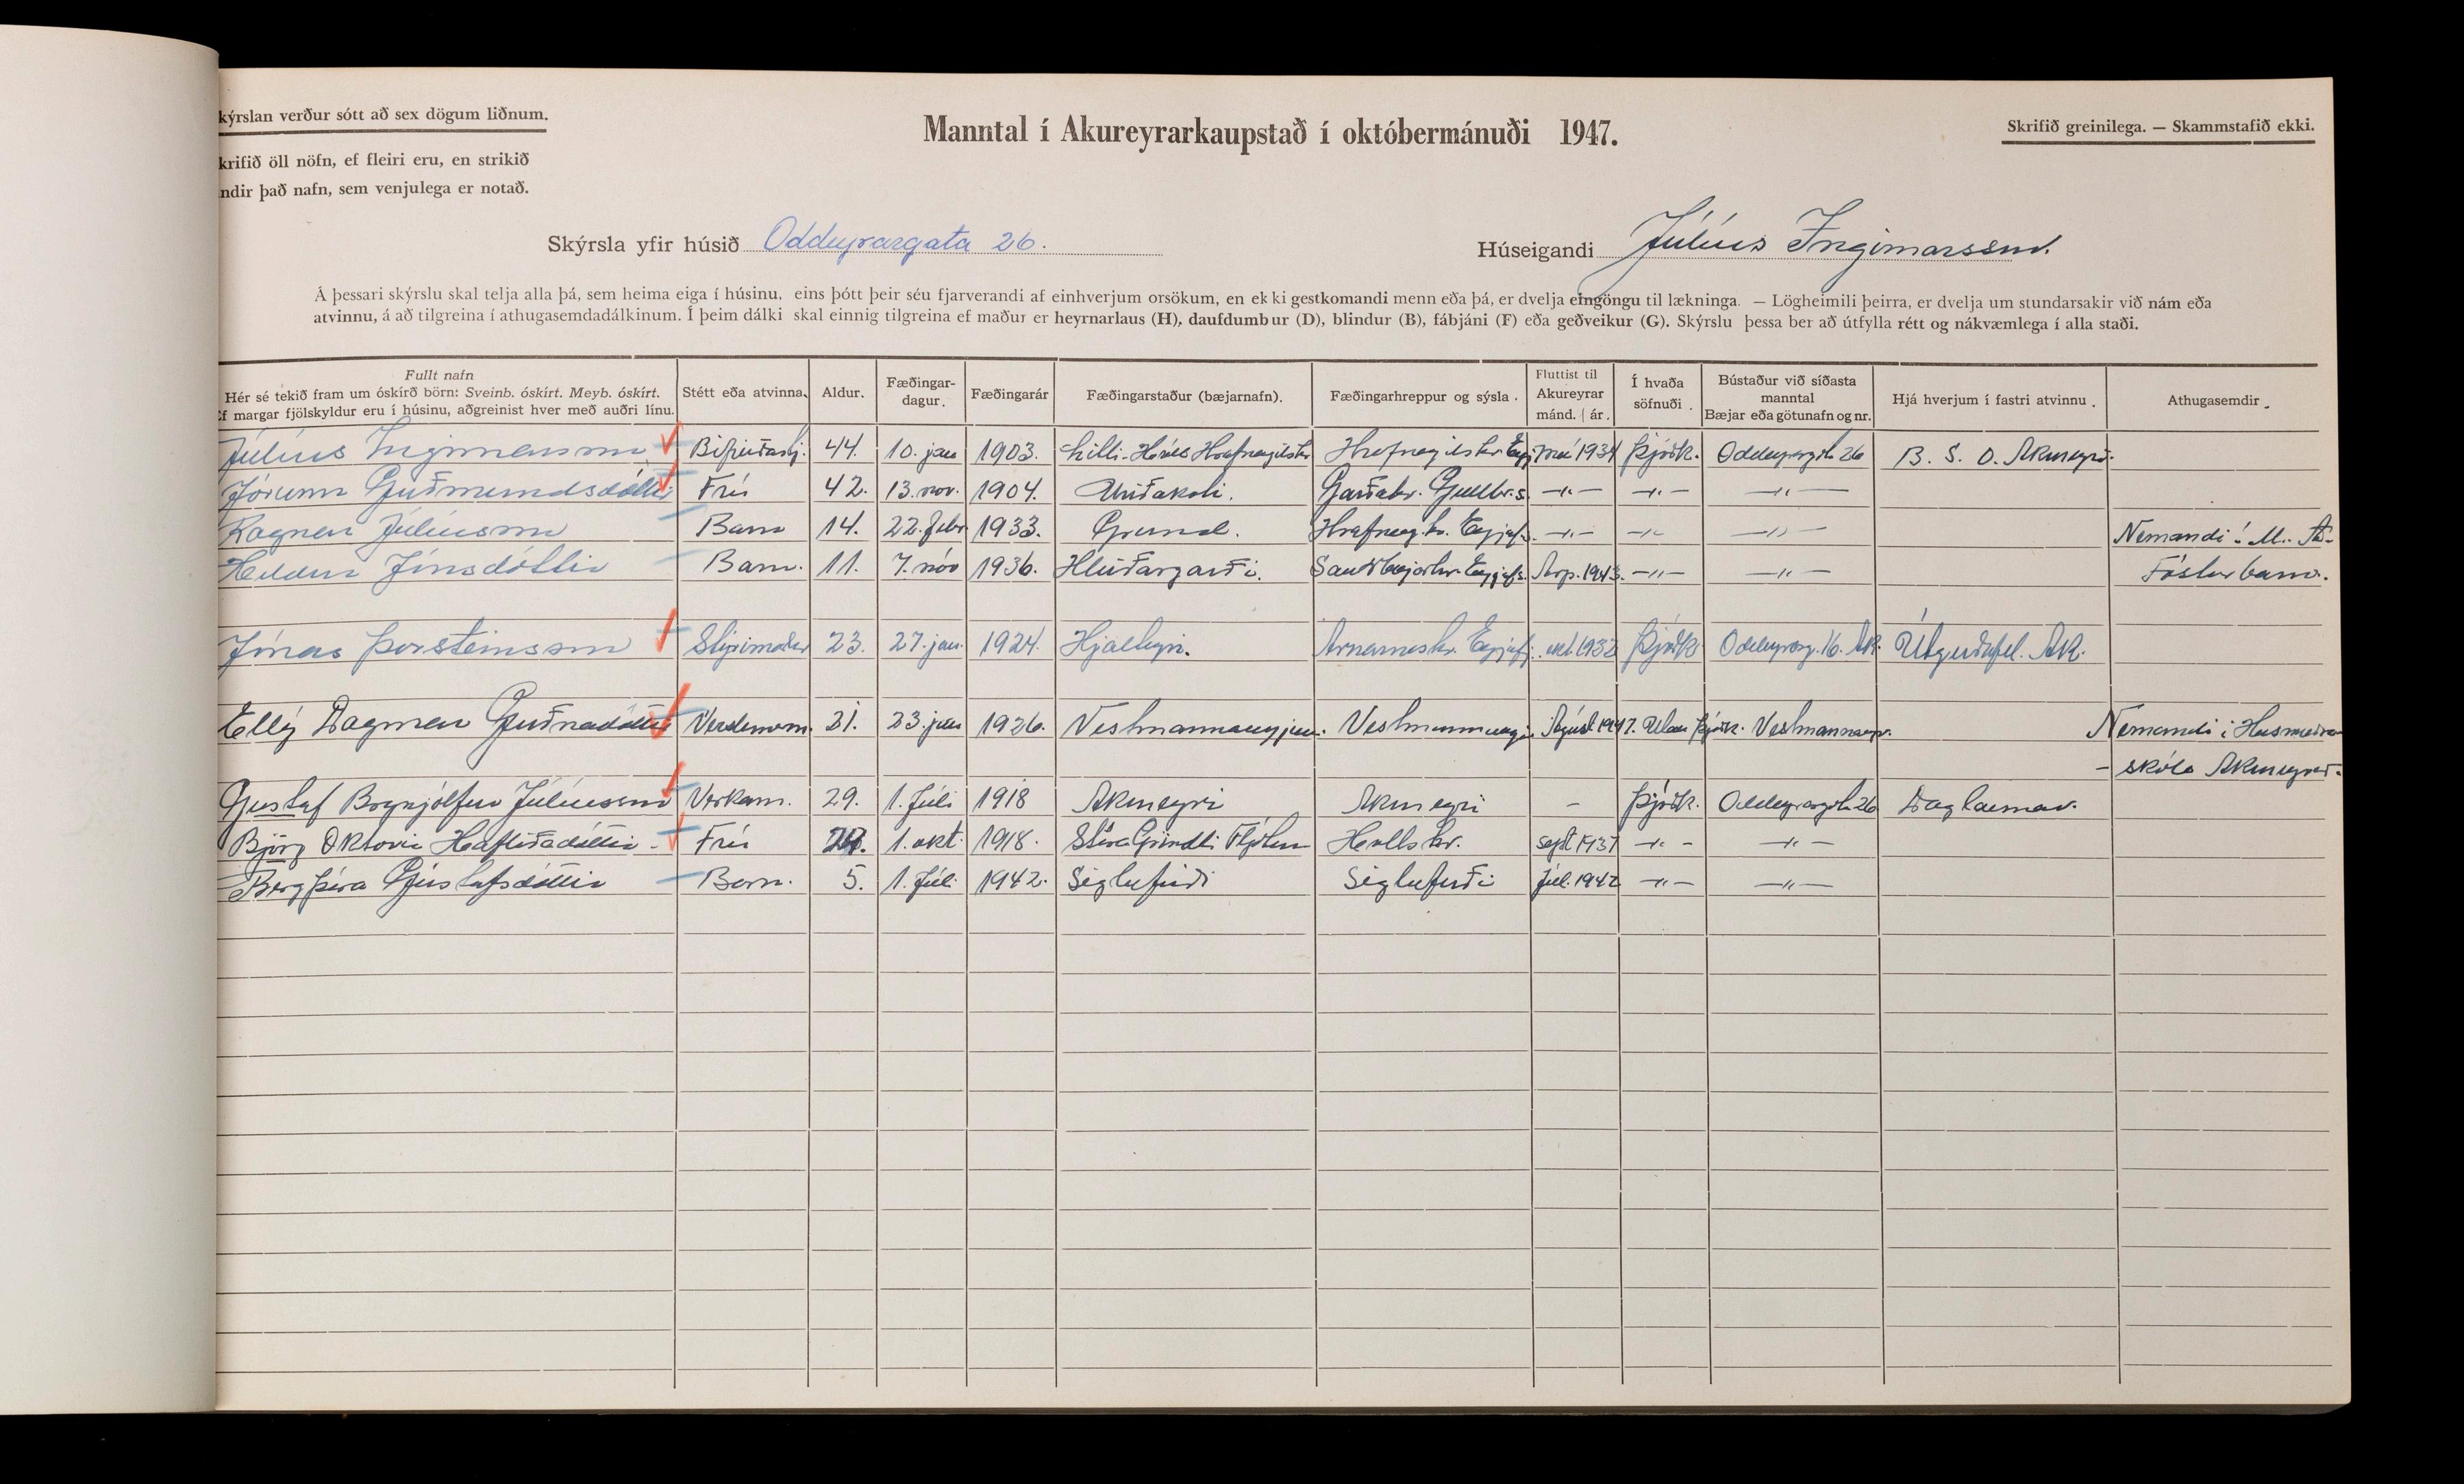 kýrslan verður sótt að sex dögum liðnum.
krifið öll nöfn, ef fleiri eru, en strikið
ndir það nafn, sem venjulega er notað.
Manntal í Akureyrarkaupstað í októbermánuði 1947.
Skrifið greinilega. — Skammstafið ekki.
Skýrsla yfir húsið Oddeyrargata 26.
Húseigandi Júlíus Ingimarsson.
Á þessari skýrslu skal telja alla þá, sem heima eiga í húsinu, eins þótt þeir séu fjarverandi af einhverjum orsökum, en ekki gestkomandi menn eða þá, er dvelja eingöngu til lækninga. — Lögheimili þeirra, er dvelja um stundarsakir við nám eða
atvinnu, á að tilgreina í athugasemdadálkinum. Í þeim dálki skal einnig tilgreina ef maður er heyrnarlaus (H), daufdumbur (D), blindur (B), fábjáni (F) eða geðveikur (G). Skýrslu þessa ber að útfylla rétt og nákvæmlega í alla staði.
Fullt nafn
Hér sé tekið fram um óskírð börn: Sveinb. óskírt. Meyb. óskírt.
Ef margar fjölskyldur eru í húsinu, aðgreinist hver með auðri línu.
Stétt eða atvinna. Aldur. Fæðingar-dagur. Fæðingarár Fæðingarstaður (bæjarnafn). Fæðingarhreppur og sýsla. Fluttist til Akureyrar mánd. | ár. Í hvaða söfnuði. Bústaður við síðasta manntal Bæjar eða götunafn og nr. Hjá hverjum í fastri atvinnu. Athugasemdir.
Júlíus Ingimarsson 44. 10. jan 1903. Litli-Hóll Hrafnagilshr Hrafnagilshr. Eyj. 1934 Þjóðk. Oddeyrargöt 26 B. S. O. Akureyri.
Jórunn Guðmundsdóttir Frú 42. 13. nov. 1904. Urriðakoti. Garðahr. Gullbr.s. —"— —"— —"—
Ragnar Júlíusson Barn 14. 22. febr 1933. Grund. Hrafnag.hr. Eyjafs. —"— —"— —"— Nemandi í M. A.
Jónsdóttir Barn. 11. 7. nóv 1936. Hlíðargarði. Saurbæjarhr. Eyjafs. 1943. —"— —"— Fósturbarn.
Jónas Þorsteinsson Stýrimaður 23. 27. jan. 1924. Hjalteyri. Arnarneshr. Eyjafj. okt. 1932 Þjóðk Oddeyrarg. 16. Ak. Útgerðafél. AK.
Ellý Dagmar Guðnadóttir 21. 23. 1926. Vestmannaeyjum. Vestmannaeyj. Ágúst 1947. Utan þjóðk. Vestmannaeyj. Nemandi í Húsmæðra
- skóla Akureyrar.
Gustaf Brynjólfur Júlíusson Verkam. 29. 1. Júlí 1918 Akureyri Akureyri - Þjóðk. Oddeyrargöt 26 Daglaunav.
Björg Oktovía Hafliðadóttir Frú 1. okt. 1918. Stóra Grindli Fljótum sept 1937 —"— —"—
Bergþóra Gústafsdóttir Barn. 5. 1. Júlí 1942. Siglufirði Siglufirði Júl. 1942 —"— —"—